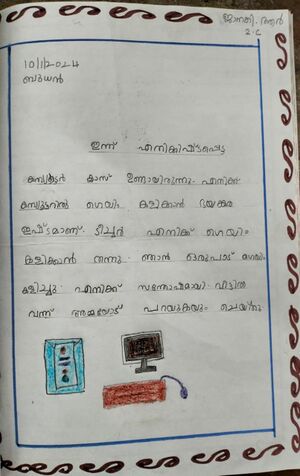 ജാനകി. ആർ
2. C
10/1/2024
ബുധൻ
ഇന്ന് എനിക്കിഷ്ടപ്പെട്ട
കമ്പ്യൂട്ടർ ക്ലാസ് ഉണ്ടായിരുന്നു. എനിക്ക്
കമ്പ്യൂട്ടറിൽ ഗെയിം കളിക്കാൻ ഭയങ്കര
ഇഷ്ടമാണ്. ടീച്ചർ എനിക്ക് ഗെയിം
കളിക്കാൻ തന്നു. ഞാൻ ഒരുപാട് ഗെയിം
കളിച്ചു. എനിക്ക് സന്തോഷമായി വീട്ടിൽ
വന്ന് അമ്മയോട് പറയുകയും ചെയ്തു.